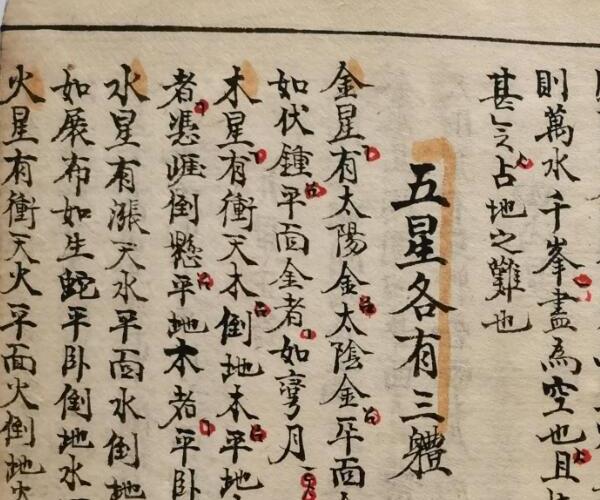 則萬水千峯盡為空也且
甚矣占地之難也
五星各有三軆
金星有太陽金太陰金平面
如伏鍾平面金者如彎月
木星有衝天木倒地木平地
者憑崕倒懸平地木者平卧
水星有漲天水平面水倒地
如展布如生蛇平卧倒地水
火星有衝天火平面火倒地